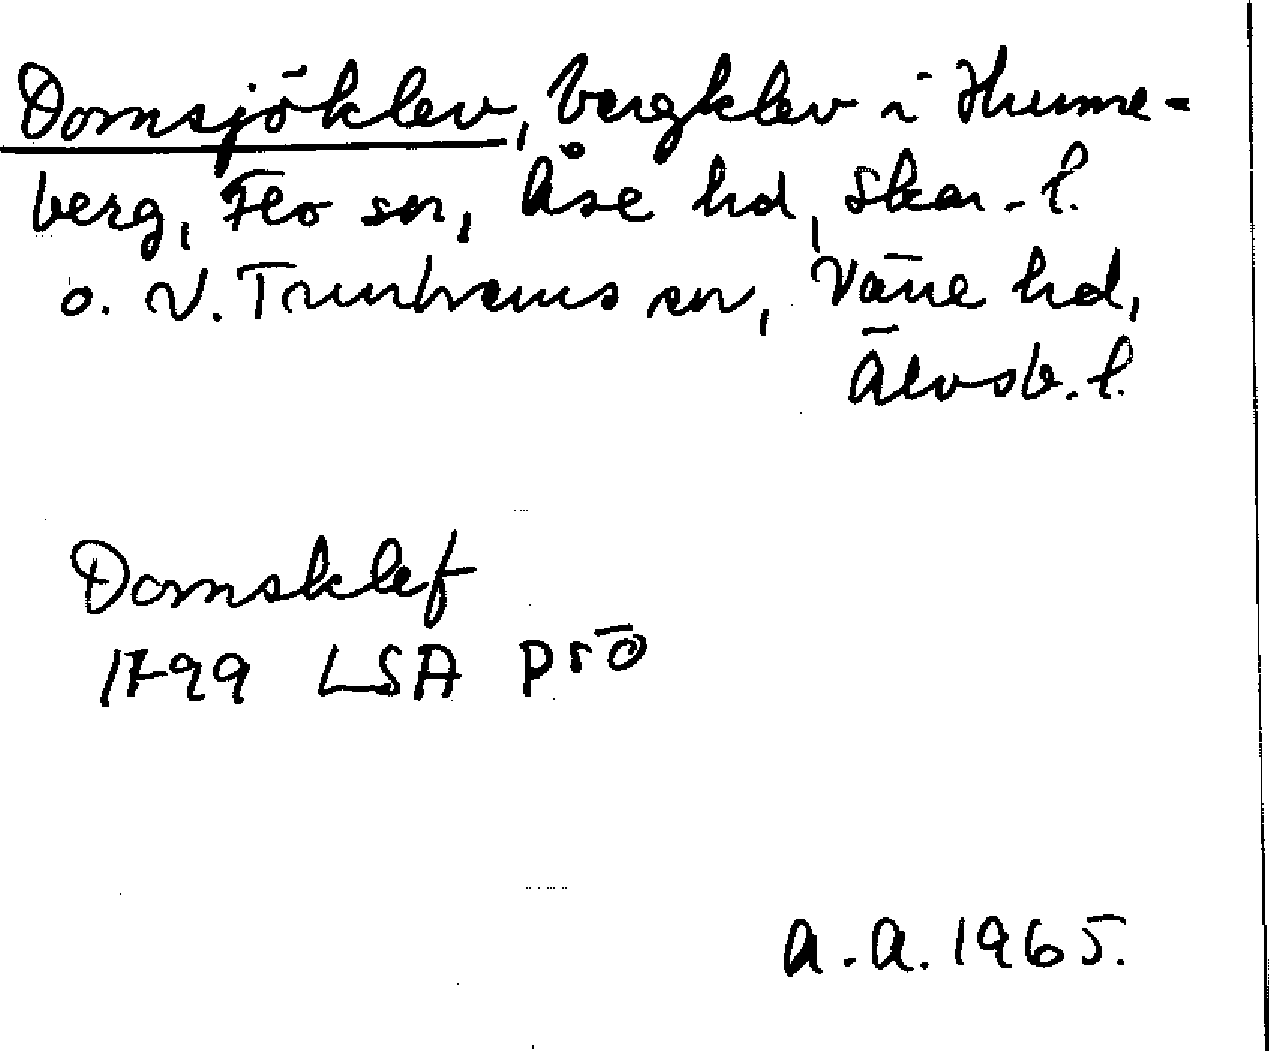 Domsjöklev, bergklev i Hume-
berg, Flo sn, Åse hd, Skar. l.
o. V. Tunhems sn, Väne hd,
Älvsb. l.
Domsklef
1799 LSA prö
A.A. 1965.